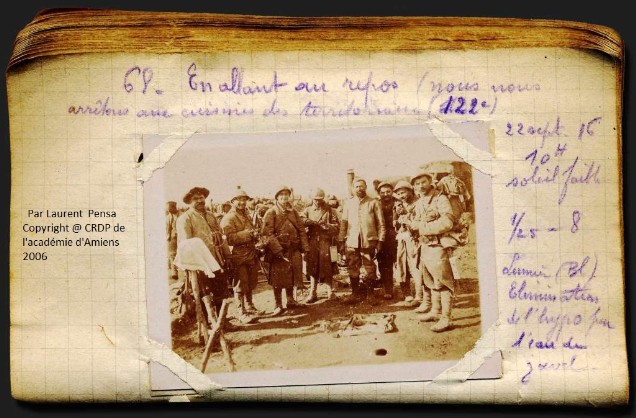 68. En allant au repos (nous nous
arrêtons aux cuisines des territoriaux (122e)
22 sept. 16
10H
soleil faible
1/25 - 8
Lumière (Bl).
Elimination
de l'hypo par
l'eau de
Javel
Par Laurent Pensa
Copyright @ CRDP de
l'académie d'Amiens
2006